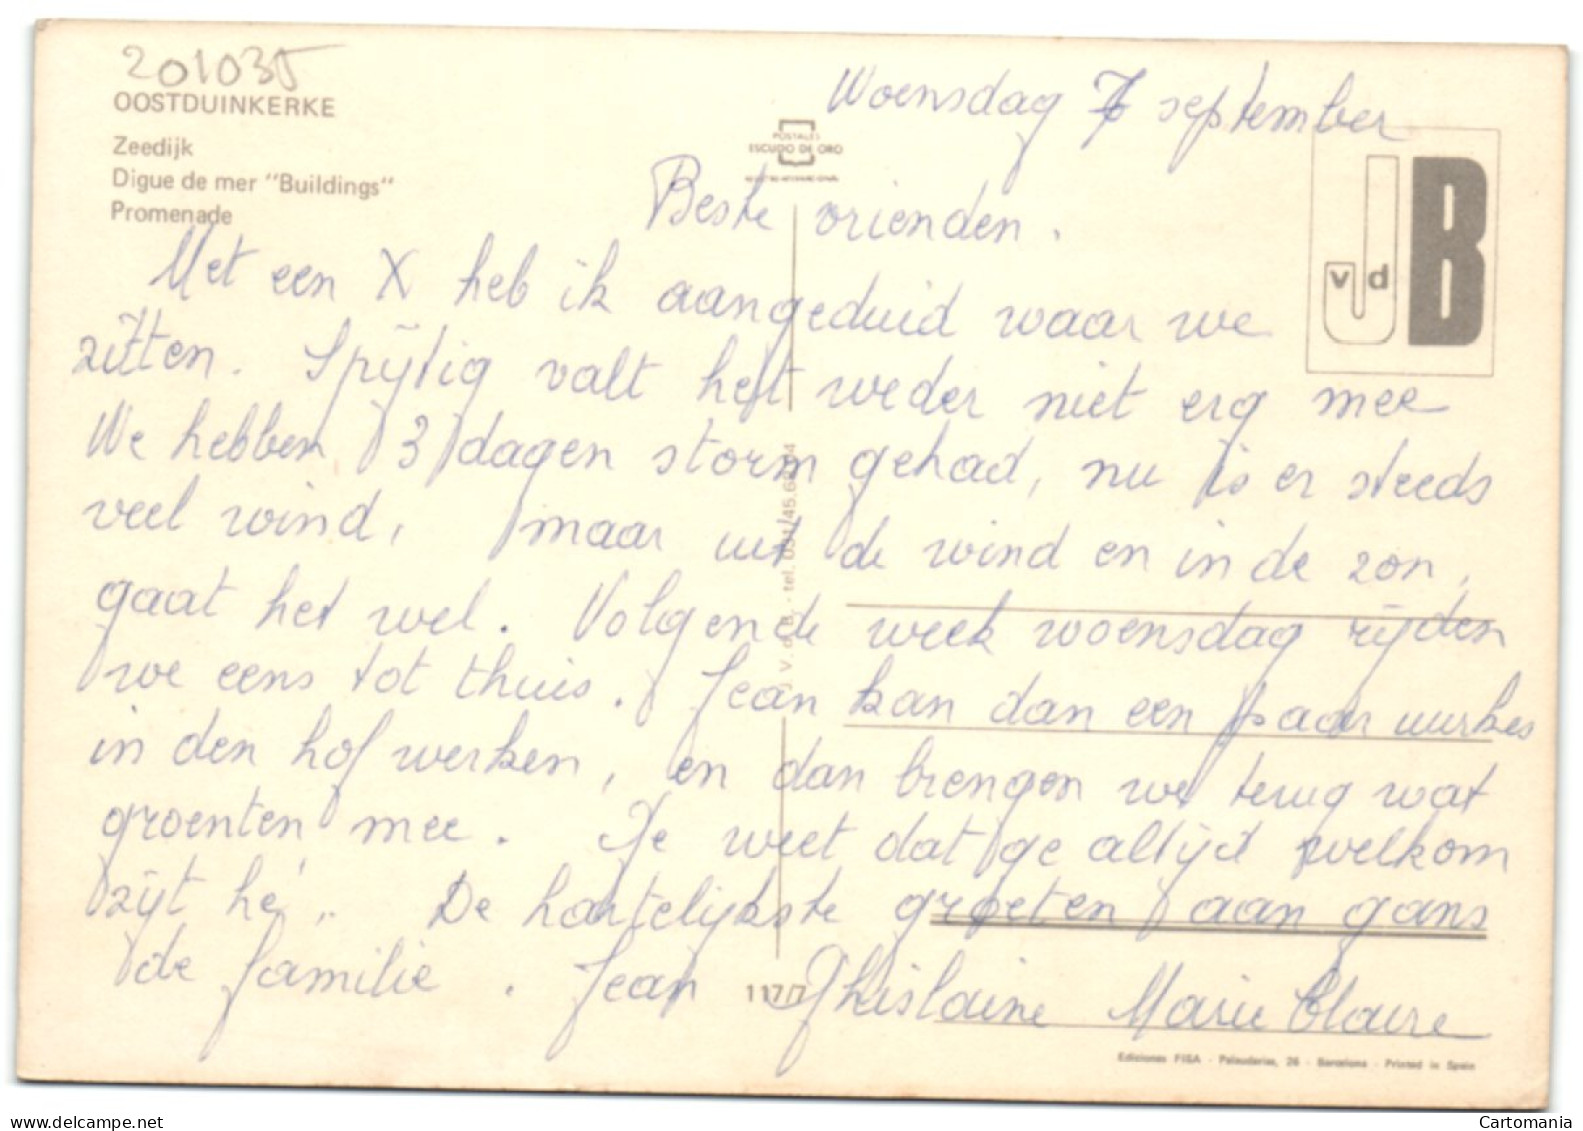 201035
OOSTDUINKERKE
Zeedijk
Digue de mer "Buildings"
Promenade
POSTALES
ESCUDO DE ORO
Woensdag 7 september
JB
v d
Beste vrienden.
Met een X heb ik aangeduid waar we
zitten. Spijtig valt het weder niet erg mee
We hebben 3 dagen storm gehad, nu is er steeds
veel wind, maar uit de wind en in de zon,
gaat het wel. Volgende week woensdag rijden
we eens tot thuis. Jean kan dan een paar uurkes
in den hof werken, en dan brengen we terug wat
groenten mee. Je weet dat ge altijd welkom
zijt hé. De hartelijkste groeten aan gans
de familie. Jean Ghislaine Marie Claire
J. V. d. B. - tel. 031/45.
117/7
Ediciones FISA - Palaudarias, 26 - Barcelona - Printed in Spain
Cartomania